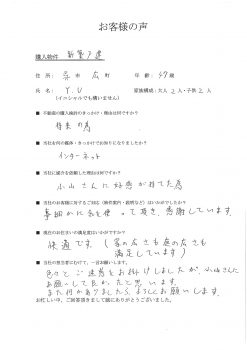 お客様の声
購入物件 新築戸建
住所：呉市 広 町 年齢：37歳
氏名：Y.U 家族構成：大人2人・子供2人
(イニシャルでも構いません)
■ 不動産の購入検討のきっかけ・理由は何ですか？
将来の為
■ 当社を何の媒体・きっかけでお知りになりましたか？
インターネット
■ 当社に仲介を依頼した理由は何ですか？
小山さんに好感が持てた為
■ 当社のお客様に対するご対応（物件案内・説明など）はいかがでしたか？
事細かに気を使って頂き、感謝しています。
■ 現在のお住まいの満足度はいかがですか？
快適です。（家の広さも庭の広さも
満足しています）
■ 当社の担当者にむけて、一言お願いします。
色々とご迷惑をお掛けしましたが、小山さんに
お願いして良かったと思います。
また何かありましたら、よろしくお願いします。
お忙しい中、ご回答頂きまして誠にありがとうございました。